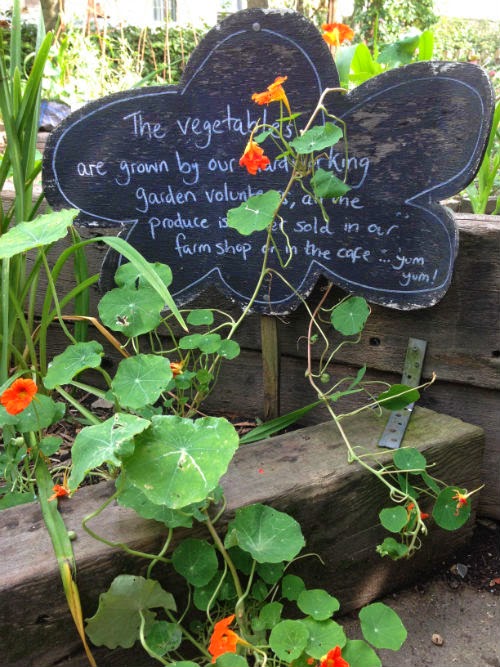 The vegetables
are grown by our hard working
garden volunteers, all the
produce is either sold in our
farm shop or in the cafe ... yum
yum!